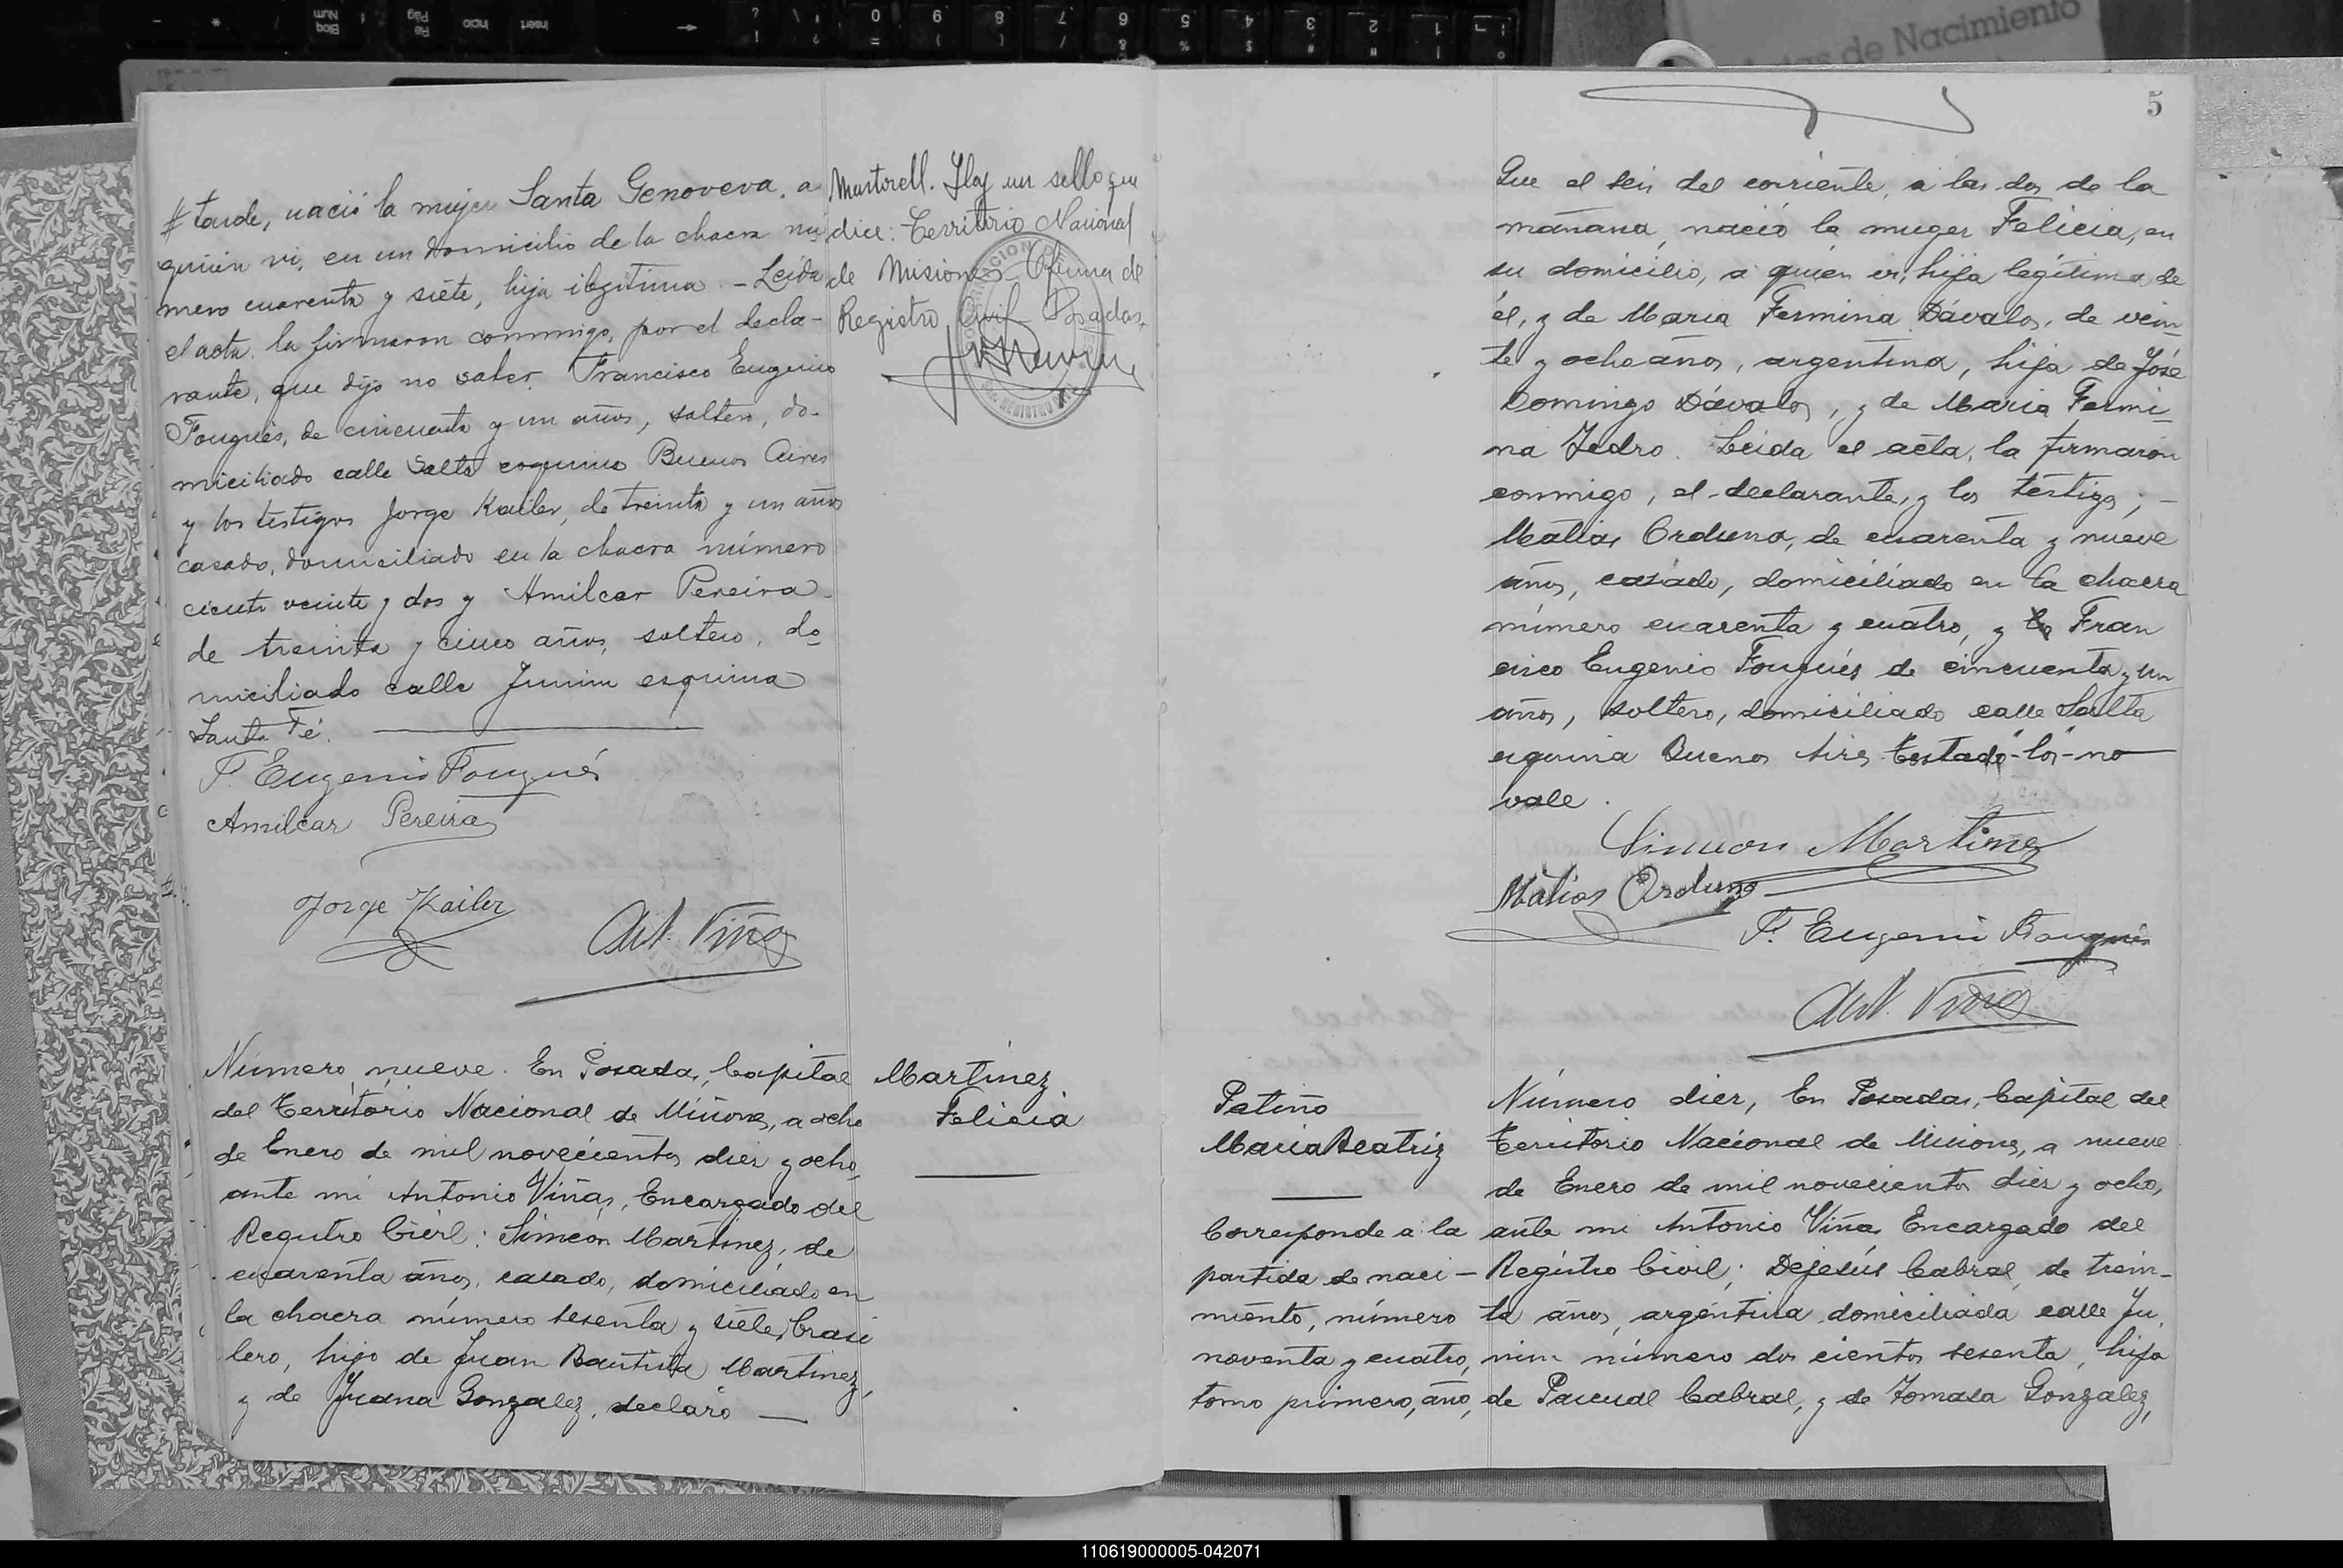 de Nacimiento
5
tarde, nació la mujer Santa Genoveva, a
quien vi, en un domicilio de la chacra nú
mero cuarenta y siete, hija ilegitima. - Leida
el acta, la firmaron conmmigo, por el decla-
rante, que dijo no saber, Francisco Eugenio
Fouguès, de cincuenta y un años, soltero, do-
miciliado calle Salta esquina Buenos Aires
y los testigos Jorge Kailer, de treinta y un años
casado, domiciliado en la chacra número
ciento veinte y dos y Amilcar Pereira
de treinta y cinco años, soltero, do
miciliado calle Junin esquina
Santa Fé.
F. Eugenio Fougués
Amilcar Pereira
Jorge Kailer
Ant. Viñas
Martorell. Hay un sello que
dice: Territorio Nacional
de Misiones - Oficina de
Registro Civil Posadas.
Número nueve. En Posadas, Capital
del Territorio Nacional de Misiones, a ocho
de Enero de mil novecientos diez y ocho,
ante mi Antonio Viñas, Encargado del
Registro Civil: Simeón Martinez, de
cuarenta años, casado, domiciliado en
la chacra número sesenta y siete, brasi
lero, hijo de Juan Bautista Martinez,
y de Juana Gonzalez, declaró —
Martinez
Felicia
Que el seis del corriente, a las dos de la
mañana, nació la muger Felicia, en
su domicilio, a quien vi, hija legítima de
él, y de Maria Fermina Dávalos, de vein
te y ocho años, argentina, hija de José
Domingo Dávalos, y de Maria Fermi
na Jedro. Leida el acta, la firmaron
conmigo, el declarante, y los testigos; -
Matias Orduna, de cuarenta y nueve
años, casado, domiciliado en la chacra
número cuarenta y cuatro, y los Fran
cisco Eugenio Fougués de cincuenta y un
años, soltero, domiciliado calle Salta
esquina Buenos Aires. Testado "los" no
vale.
Simeon Martinez
Matias Orduna
F. Eugenio Fougués
Ant. Viñas
Patiño
Maria Beatriz
Corresponde a la
partida de naci -
miento, número
noventa y cuatro,
tomo primero, año,
Número diez, En Posadas, Capital del
Territorio Nacional de Misiones, a nueve
de Enero de mil novecientos diez y ocho,
ante mi Antonio Viñas Encargado del
Registro Civil; Dejesús Cabral, de trein-
ta años, argentina domiciliada calle Ju
nin número dos cientos sesenta, hija
de Pascual Cabral, y de Tomasa Gonzalez,
110619000005-042071